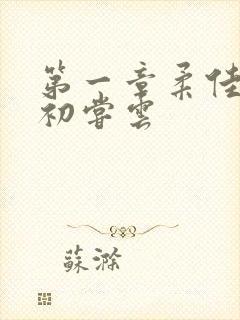 第一章柔佳
初嘗雲
蘇滁